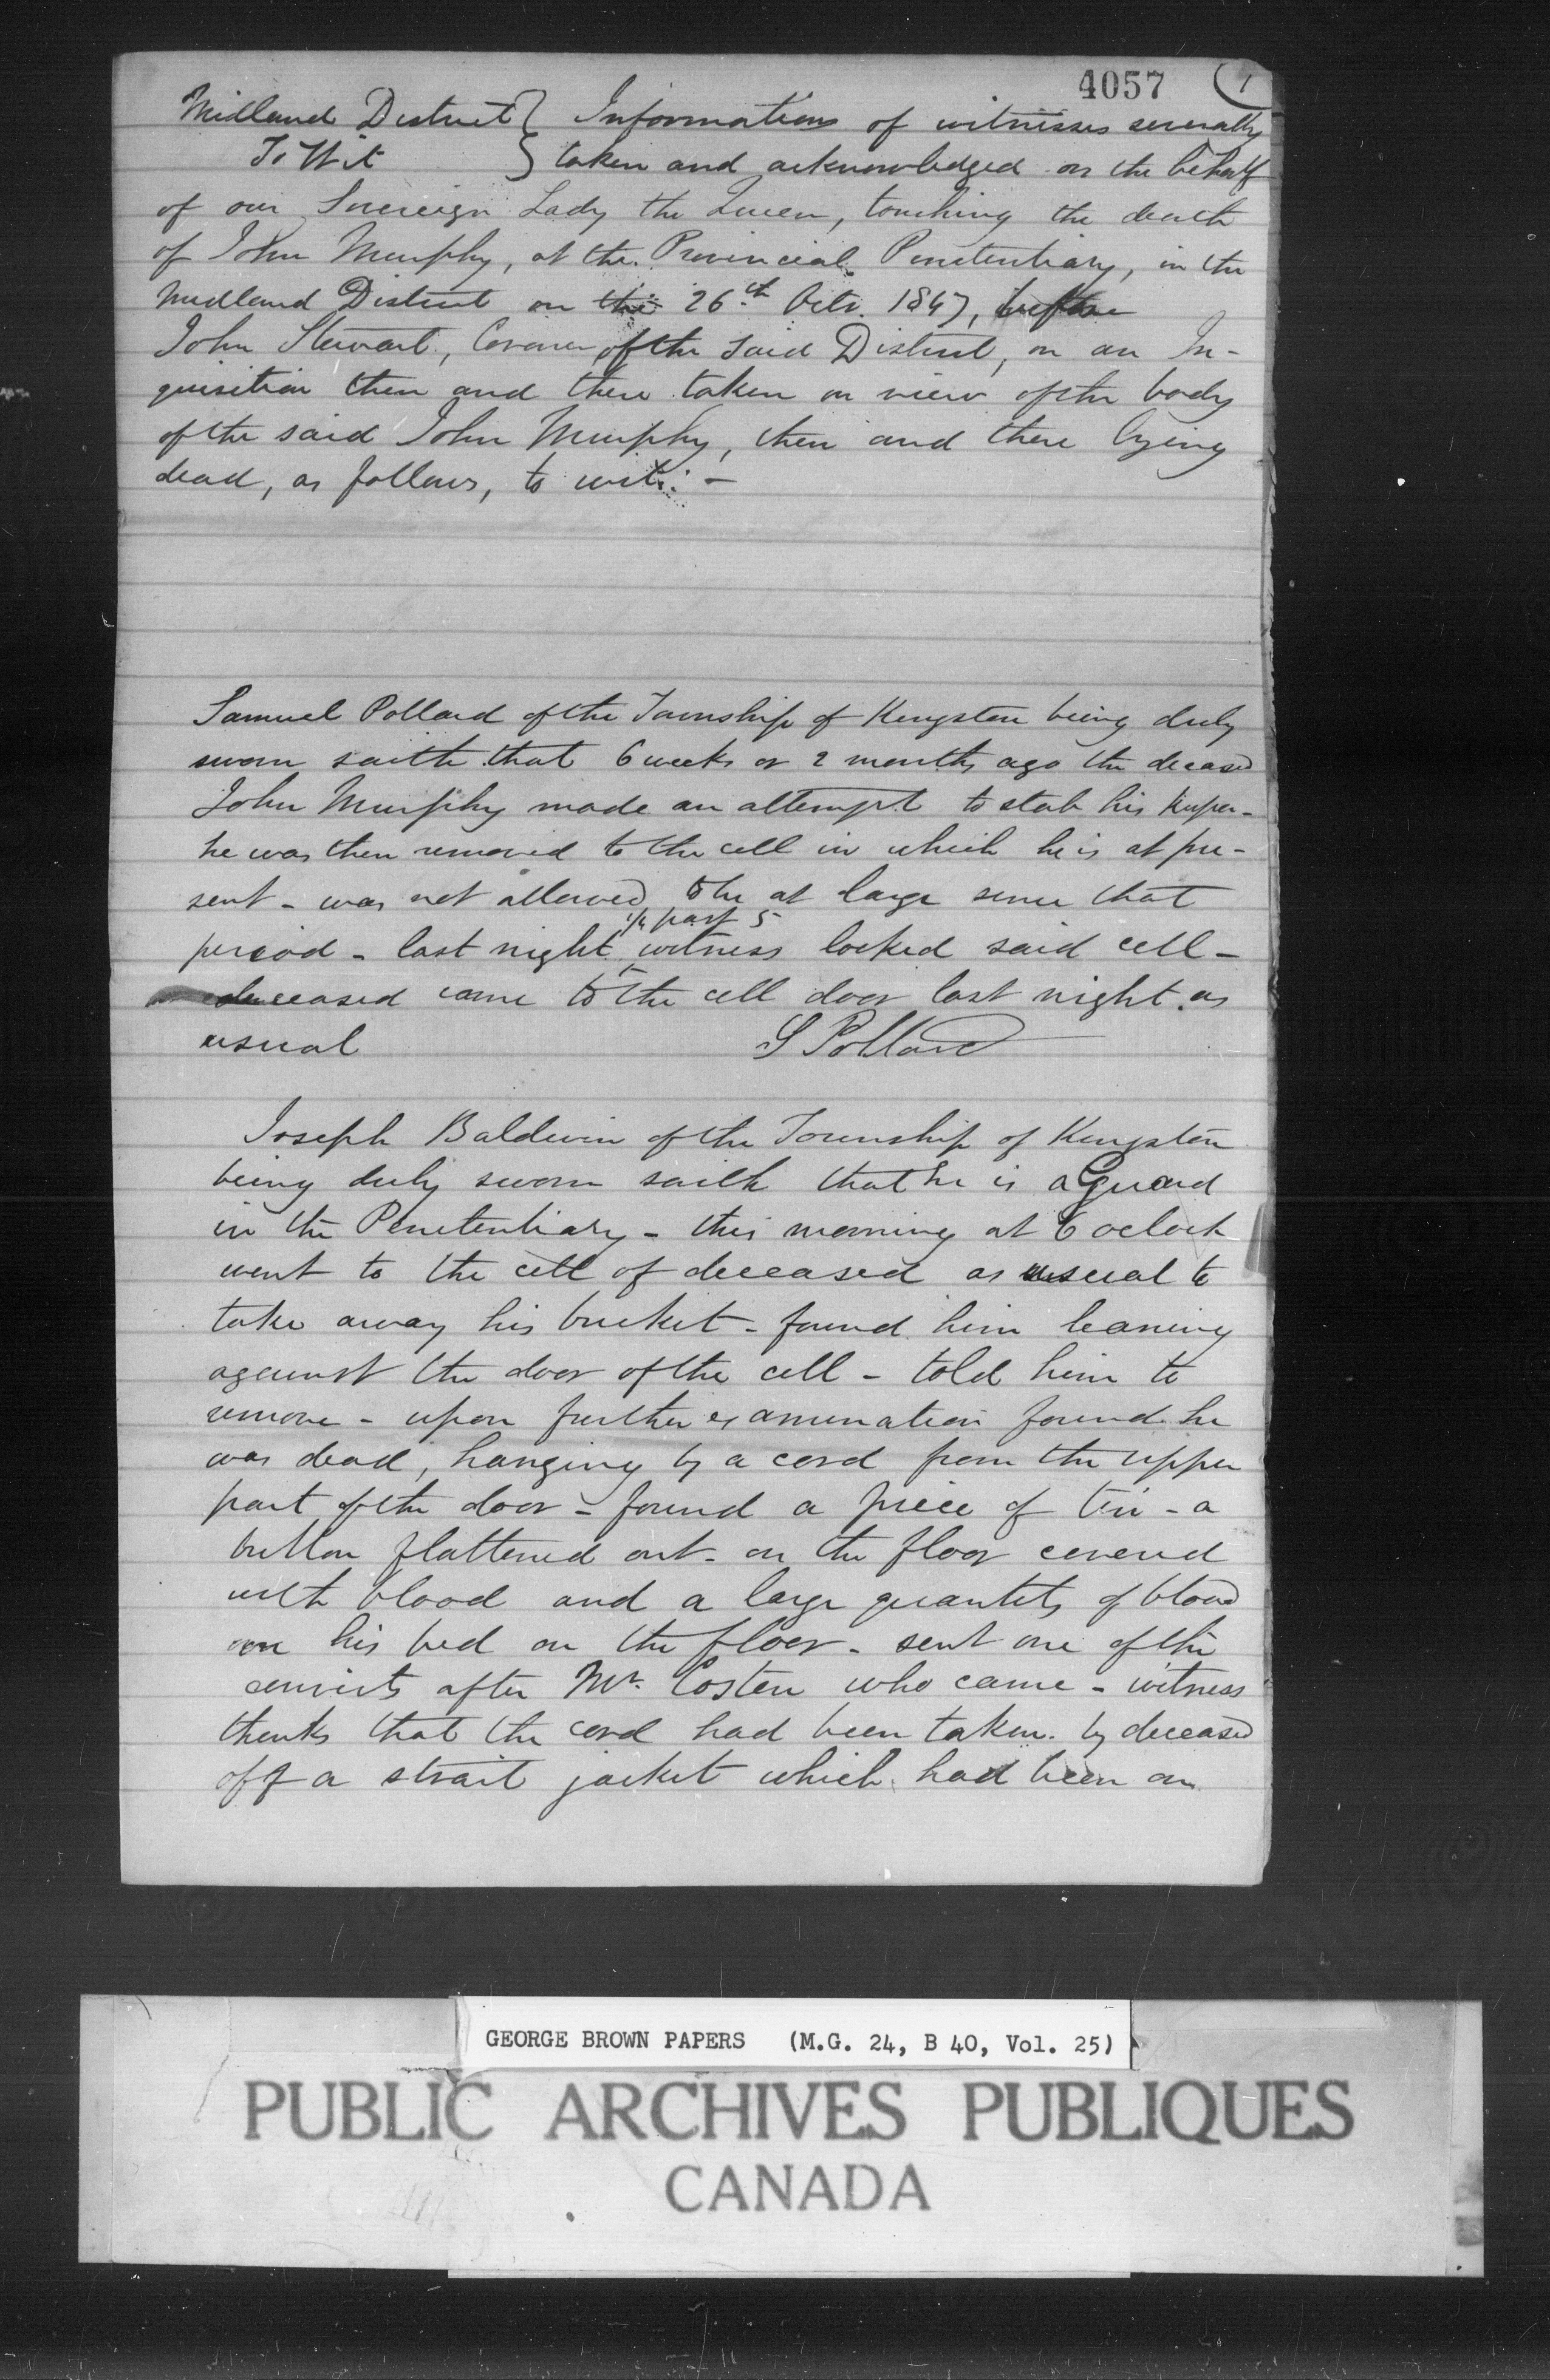 4057 1
Midland District } Informations of witnesses severally
To Wit } taken and acknowledged on the behalf
of our Sovereign Lady the Queen, touching the death
of John Murphy, at the Provincial Penitentiary, in the
Midland District on the 26th Octr. 1847, before
John Stewart, Coroner of the said District, on an In-
quisition then and there taken on view of the body
of the said John Murphy, then and there lying
dead, as follows, to wit: -
Samuel Pollard of the Township of Kingston being duly
sworn saith that 6 weeks or 2 months ago the deceased
John Murphy made an attempt to stab his keeper -
he was then removed to the cell in which he is at pre-
sent - was not allowed to be at large since that
1/4 past 5
period - last night witness locked said cell -
deceased came to the cell door last night as
usual S Pollard
Joseph Baldwin of the Township of Kingston
being duly sworn saith that he is a Guard
in the Penitentiary - this morning at 6 oclock
went to the cell of deceased as usual to
take away his bucket - found him leaning
against the door of the cell - told him to
remove - upon further examination found he
was dead, hanging by a cord from the upper
part of the door - found a piece of tin - a
button flattened out - on the floor covered
with blood and a large quantity of blood
on his bed on the floor - sent one of the
convicts after Mr. Costen who came - witness
thinks that the cord had been taken by deceased
off a strait jacket which had been on
GEORGE BROWN PAPERS (M.G. 24, B 40, Vol. 25)
PUBLIC ARCHIVES PUBLIQUES
CANADA